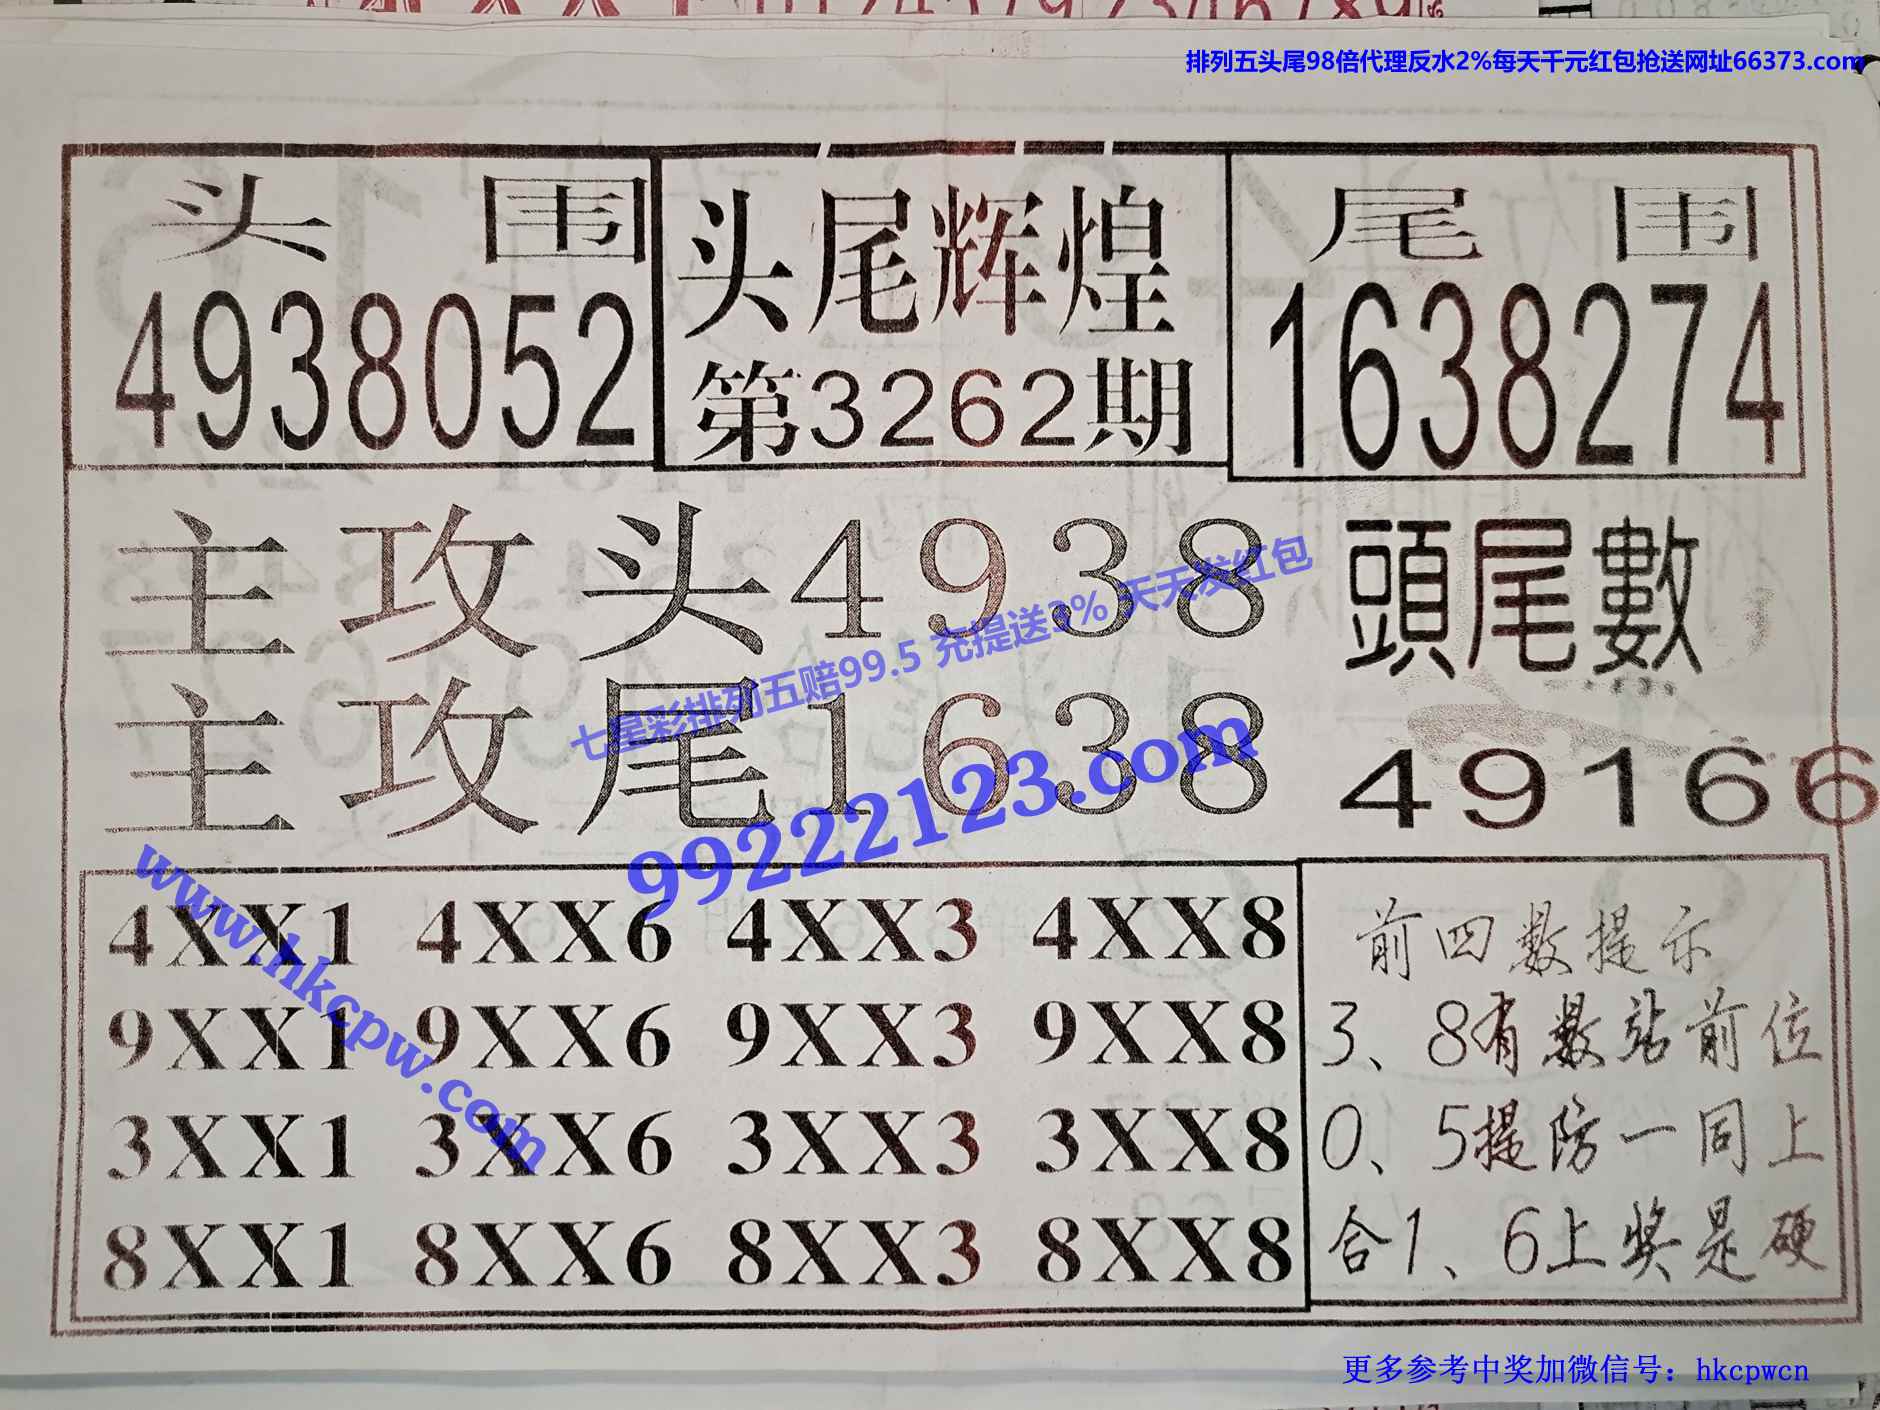 排列五头尾98倍代理反水2%每天千元红包抢送网址66373.com
头 围
4938052
头尾辉煌
第3262期
尾 围
1638274
主攻头4938
主攻尾1638
頭尾數
49166
七星彩排列五赔99.5 充提送3% 天天发红包
99222123.com
www.hkcpw.com
4XX1 4XX6 4XX3 4XX8
9XX1 9XX6 9XX3 9XX8
3XX1 3XX6 3XX3 3XX8
8XX1 8XX6 8XX3 8XX8
前四数提示
3、8有数站前位
0、5提防一同上
合1、6上奖是硬
更多参考中奖加微信号：hkcpwcn